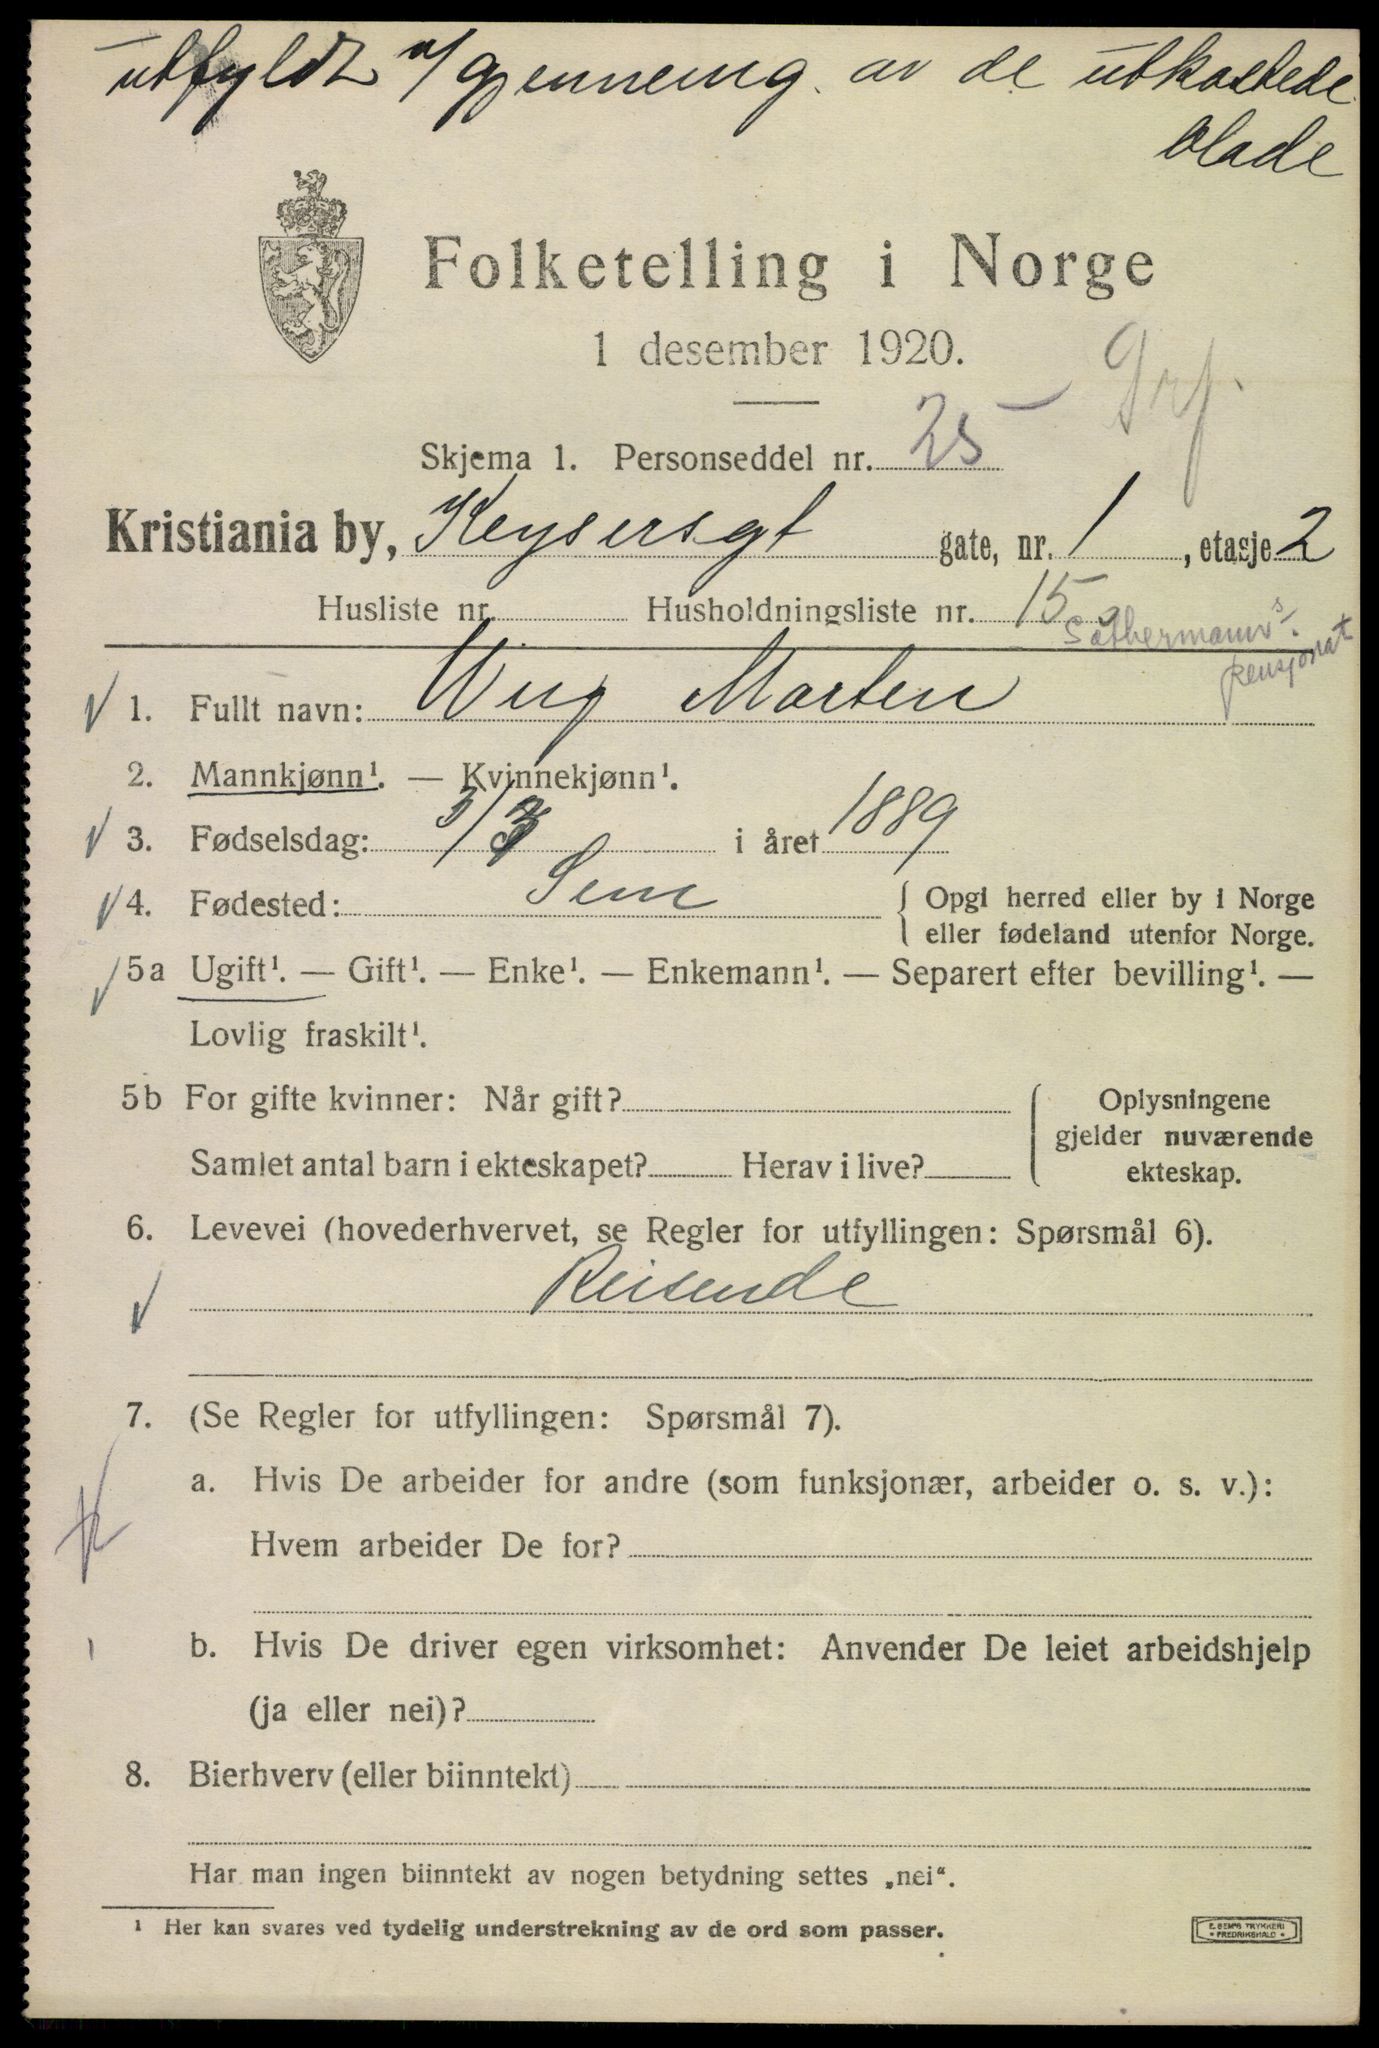 utfyldt v/ gjennemg. av de utkastede
blade
Folketelling i Norge
1 desember 1920.
Skjema 1. Personseddel nr. 25
Kristiania by, Keysersgt gate, nr. 1, etasje 2
Husliste nr. Husholdningsliste nr. 15
pensjonat
1. Fullt navn: Wiig Marten
2. Mannkjønn¹. — Kvinnekjønn¹.
3. Fødselsdag: 3/3 i året 1889
4. Fødested: Sem { Opgi herred eller by i Norge
eller fødeland utenfor Norge.
5a Ugift¹. — Gift¹. — Enke¹. — Enkemann¹. — Separert efter bevilling¹. —
Lovlig fraskilt¹.
5b For gifte kvinner: Når gift? Oplysningene
gjelder nuværende
Samlet antal barn i ekteskapet? Herav i live? ekteskap.
6. Levevei (hovederhvervet, se Regler for utfyllingen: Spørsmål 6).
Reisende
7. (Se Regler for utfyllingen: Spørsmål 7).
a. Hvis De arbeider for andre (som funksjonær, arbeider o. s. v.):
Hvem arbeider De for?
b. Hvis De driver egen virksomhet: Anvender De leiet arbeidshjelp
(ja eller nei)?
8. Bierhverv (eller biinntekt)
Har man ingen biinntekt av nogen betydning settes „nei“.
¹ Her kan svares ved tydelig understrekning av de ord som passer.
E. SEM'S TRYKKERI
• FREDRIKSHALD •